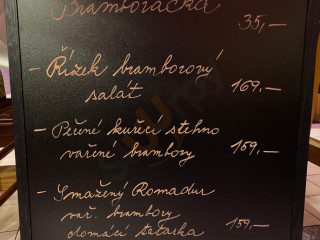 Bramboračka
35,–
– Řízek bramborový
salát 169,–
– Pečené kuřecí stehno
vařené brambory 159,–
– Smažený Romadur
vař. brambory
domácí tatarka 159,–